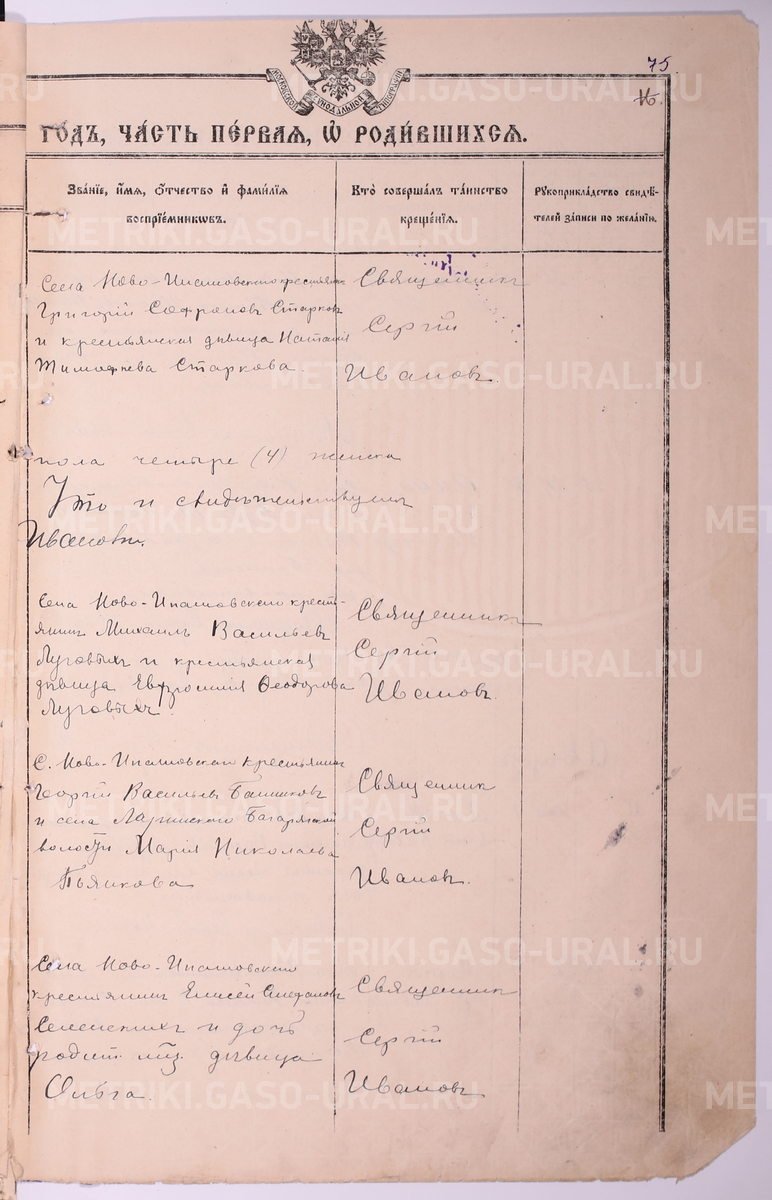 75
16.
МОСКОВСКОЙ СѴНОДАЛЬНОЙ ТИПОГРАФІИ
ГОДЪ, ЧА́СТЬ ПЕ́РВАЯ, Ѡ РОДИ́ВШИХСЯ.
Зва́ніе, и́мя, о́тчество и҆ фами́лія
воспріе́мниковъ.
Кто̀ соверша́лъ та́инство
креще́нія.
Рукоприкла́дство свидѣ́-
телей за́писи по жела́нію.
Села Ново-Ипатовского крестьянин
Григорій Софроновъ Старковъ
и крестьянская дѣвица Наталія
Тимофеева Старкова.
Священникъ
Сергій
Ивановъ.
пола четыре (4) женска
Что и свидѣтельствуемъ
Ивановъ.
Села Ново-Ипатовского кресть-
янинъ Михаилъ Васильевъ
Луговыхъ и крестьянская
дѣвица Евфросинія Ѳеодорова
Луговыхъ.
Священникъ
Сергій
Ивановъ.
С. Ново-Ипатовского крестьянинъ
Георгій Васильевъ
и села Ларинского Багарякской
волости Марія Николаева
Пьянкова
Священник
Сергій
Ивановъ.
Села Ново-Ипатовского
крестьянинъ Елисей Стефановъ
и дочь
родит. дѣвица
Ольга.
Священник
Сергій
Ивановъ
METRIKI.GASO-URAL.RU